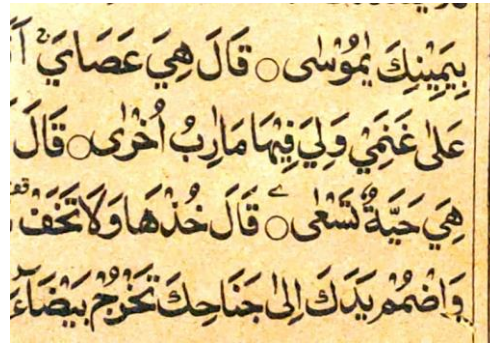 بِيَمِيْنِكَ يٰمُوْسٰى ○ قَالَ هِيَ عَصَايَ ۚ
عَلٰى غَنَمِيْ وَلِيَ فِيْهَا مَاٰرِبُ اُخْرٰى ○ قَالَ
هِيَ حَيَّةٌ تَسْعٰى ○ قَالَ خُذْهَا وَلَا تَخَفْ
وَاضْمُمْ يَدَكَ اِلٰى جَنَاحِكَ تَخْرُجْ بَيْضَآءَ